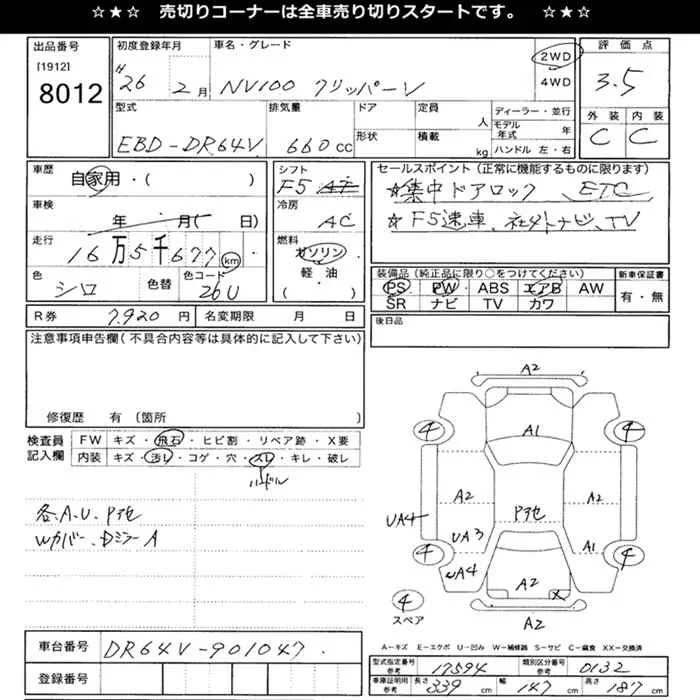 ☆★☆ 売切りコーナーは全車売り切りスタートです。 ☆★☆
出品番号
[1912]
8012
初度登録年月
H 26 年 2 月
車名・グレード
NV100 クリッパーV
2WD
4WD
評価点
3.5
外装 内装
C C
型式
EBD-DR64V
排気量
660 cc
ドア
形状
定員
人
積載
kg
ディーラー・並行
モデル年式 年
ハンドル 左・右
車歴
自家用・( )
車検
年 月( 日)
走行
16万5千677 km
色
シロ
色替
色コード
26U
シフト
F5 AT
冷房
AC
燃料
ガソリン
軽油
( )
セールスポイント(正常に機能するものに限ります)
☆集中ドアロック ETC
☆F5速車、社外ナビ、TV
装備品(純正品に限り○をつけてください)
PS PW ABS エアB AW
SR ナビ TV カワ
新車保証書
有・無
R券 7,920 円
名変期限 月 日
後日品
注意事項申告欄(不具合内容等は具体的に記入して下さい)
修復歴 有 (箇所 )
検査員記入欄
FW キズ・飛石・ヒビ割・リペア跡・X要
内装 キズ・汚レ・コゲ・穴・スレ・キレ・破レ
ハンドル
各、A、U、Pアセ
Wカバー、DミラーA
A2
4 4
A1
A2 Pアセ A2
UA4
UA3 A1
4 4
UA4 A2 X
4
スペア
A2
A-キズ E-エクボ U-凹み W-補修跡 S-サビ C-腐食 XX-交換済
車台番号 DR64V-901047
登録番号
型式指定番号 参考 17594
類別区分番号 参考 0132
車庫証明用 参考 長さ 339 cm 幅 147 cm 高さ 187 cm